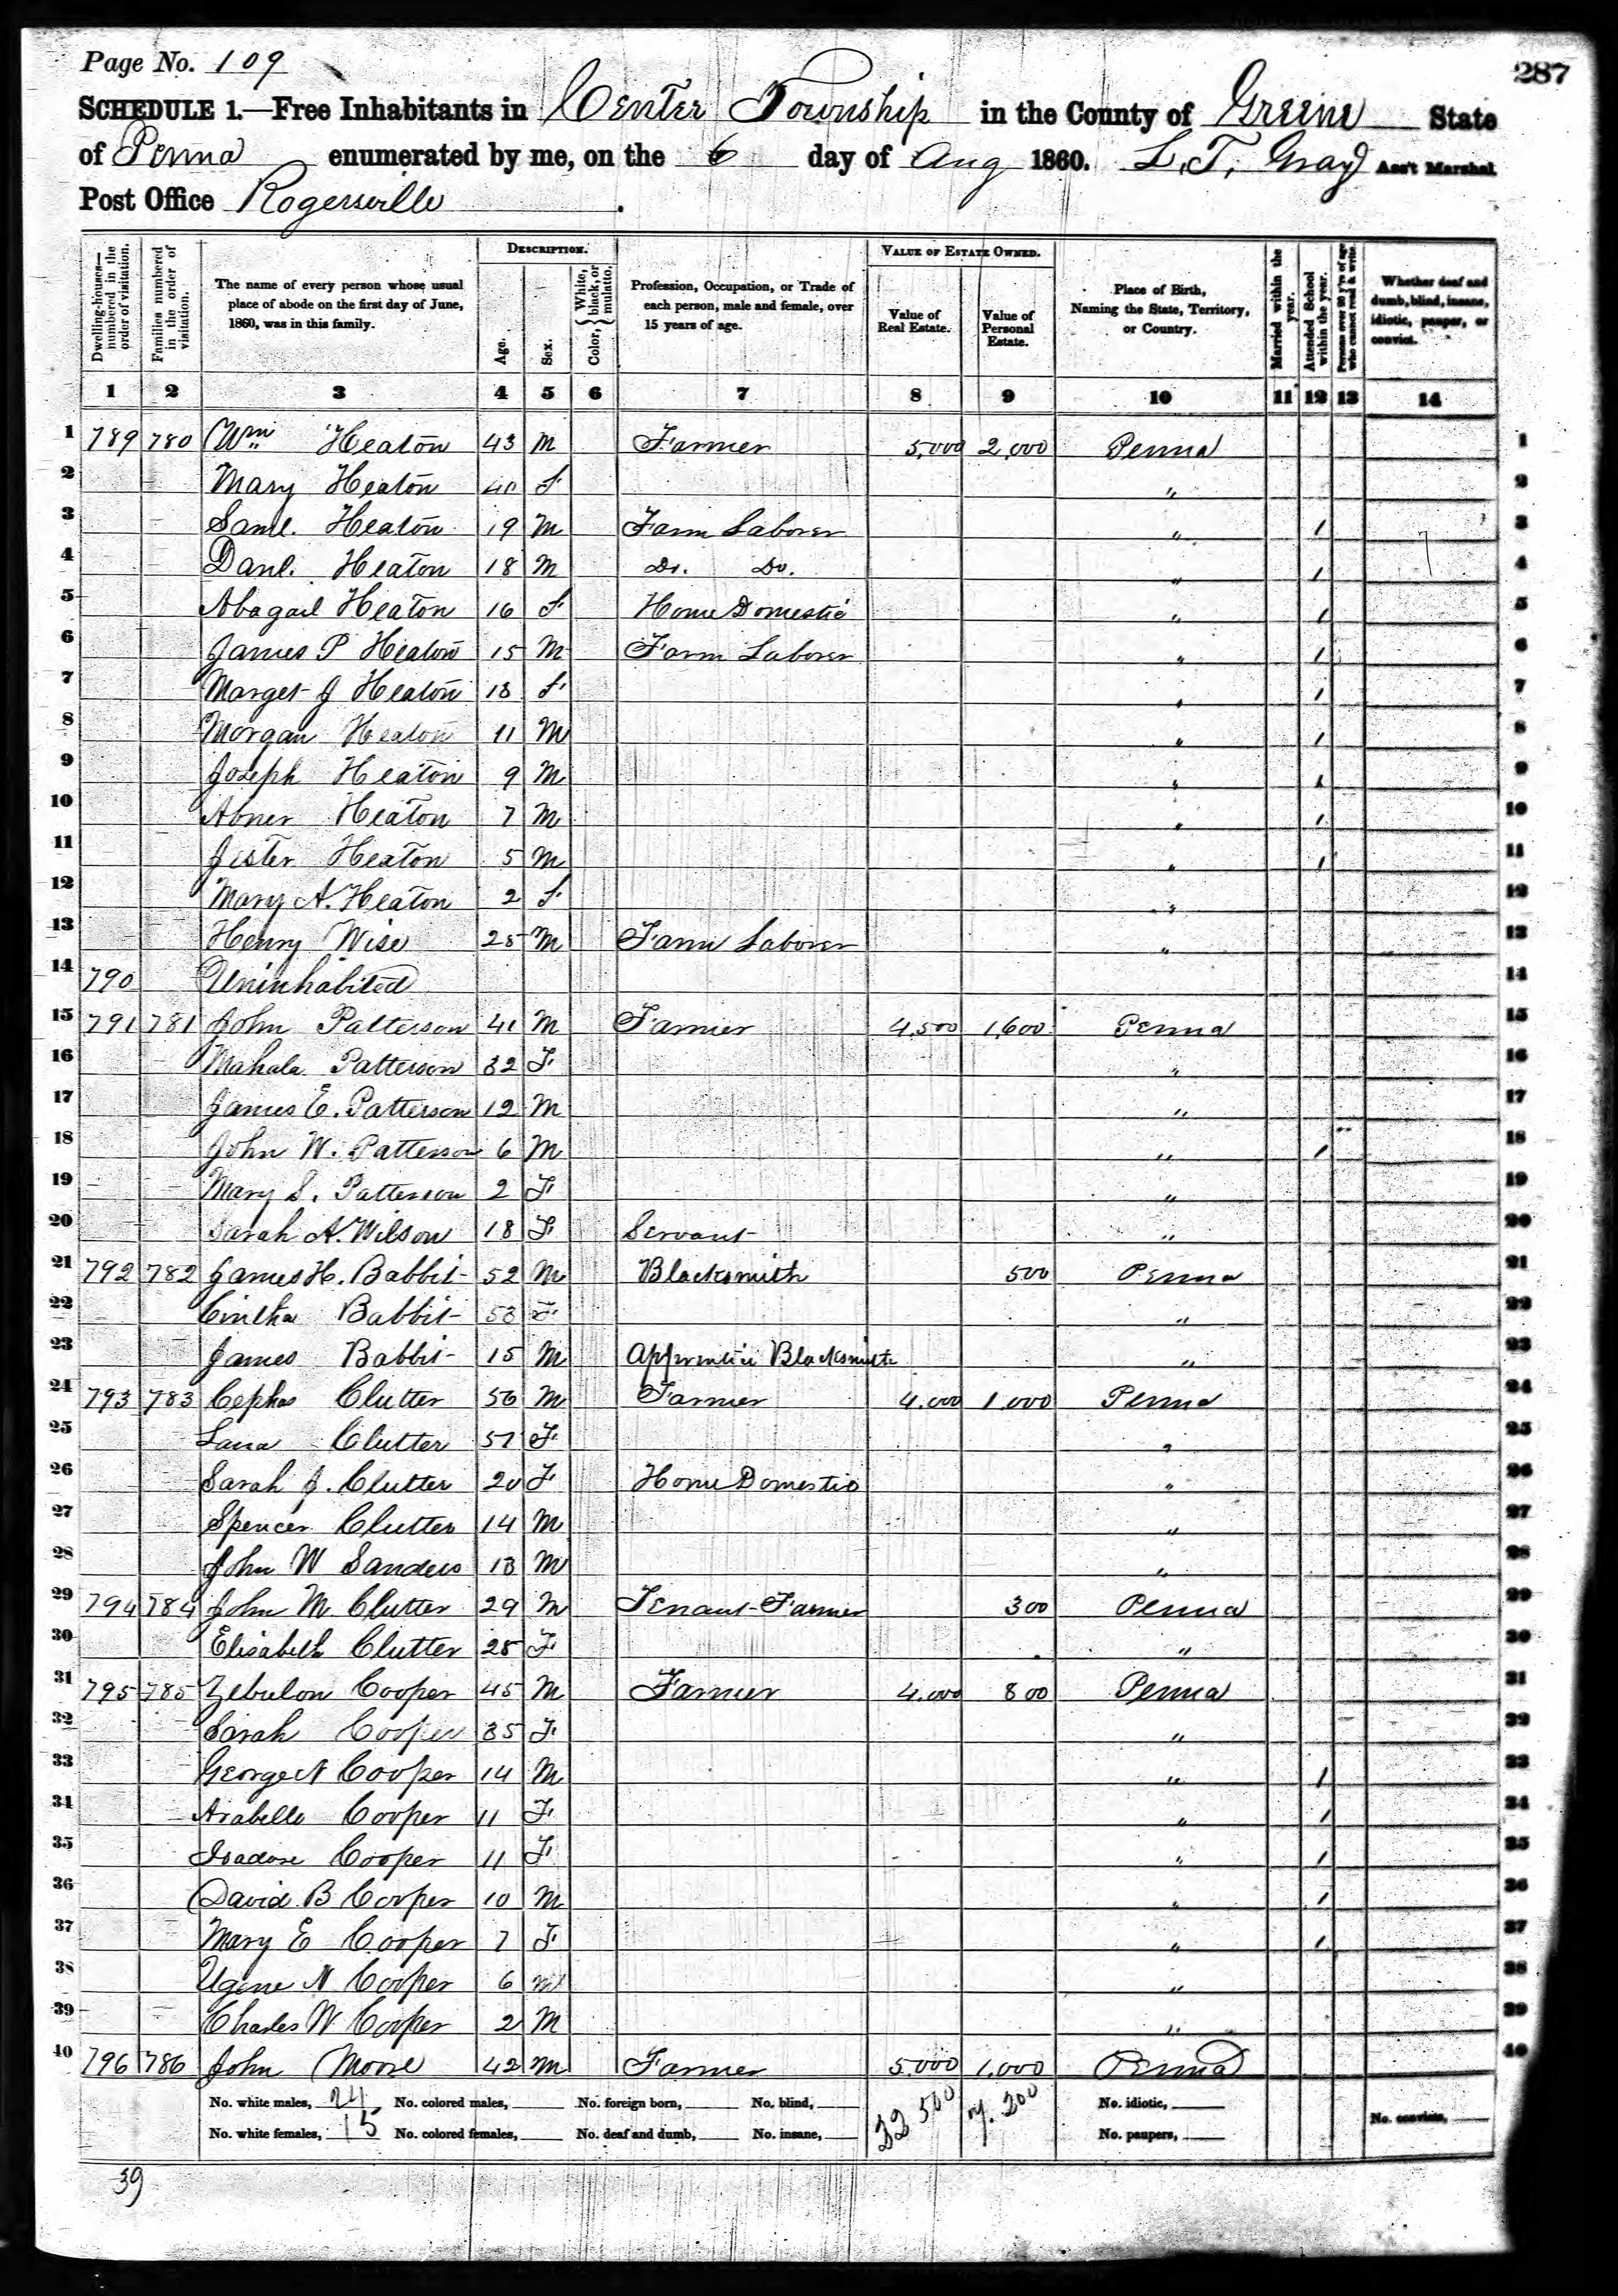 Page No. 109
287
SCHEDULE 1.—Free Inhabitants in Center Township in the County of Greene State
of Penna enumerated by me, on the 6 day of Aug 1860. L. T. Gray Ass't Marshal.
Post Office Rogersville.
Dwelling-houses—numbered in the order of visitation.
Families numbered in the order of visitation.
The name of every person whose usual place of abode on the first day of June, 1860, was in this family.
DESCRIPTION.
Age.
Sex.
Color, { White, black, or mulatto.
Profession, Occupation, or Trade of each person, male and female, over 15 years of age.
VALUE OF ESTATE OWNED.
Value of Real Estate.
Value of Personal Estate.
Place of Birth, Naming the State, Territory, or Country.
Married within the year.
Attended School within the year.
Persons over 20 y'rs of age who cannot read & write.
Whether deaf and dumb, blind, insane, idiotic, pauper, or convict.
1 2 3 4 5 6 7 8 9 10 11 12 13 14
1 789 780 Wm Heaton 43 M Farmer 5,000 2,000 Penna 1
2 Mary Heaton 40 f " 2
3 Saml. Heaton 19 M Farm Laborer " / 3
4 Danl. Heaton 18 M Do. Do. " / 4
5 Abagail Heaton 16 f Home Domestic " / 5
6 James P Heaton 15 M Farm Laborer " / 6
7 Marget J Heaton 13 f " / 7
8 Morgan Heaton 11 M " / 8
9 Joseph Heaton 9 M " / 9
10 Abner Heaton 7 M " / 10
11 Jister Heaton 5 M " / 11
12 Mary A. Heaton 2 f " 12
13 Henry Wise 25 M Farm Laborer " 13
14 790 Uninhabited 14
15 791 781 John Patterson 41 M Farmer 4,500 1,600 Penna 15
16 Mahala Patterson 32 F " 16
17 James E. Patterson 12 M " 17
18 John W. Patterson 6 M " / 18
19 Mary S. Patterson 2 F " 19
20 Sarah A. Wilson 18 F Servant " 20
21 792 782 James H. Babbit 52 M Blacksmith 500 Penna 21
22 Cintha Babbit 53 F " 22
23 James Babbit 15 M Apprentice Blacksmith " 23
24 793 783 Cephas Clutter 56 M Farmer 4,000 1,000 Penna 24
25 Lana Clutter 57 F " 25
26 Sarah J. Clutter 20 F Home Domestic " 26
27 Spencer Clutter 14 M " 27
28 John W Sanders 13 M " 28
29 794 784 John M Clutter 29 M Tenant Farmer 300 Penna 29
30 Elisabeth Clutter 25 F " 30
31 795 785 Zebulon Cooper 45 M Farmer 4,000 800 Penna 31
32 Sarah Cooper 35 F " 32
33 George N Cooper 14 M " / 33
34 Arabelle Cooper 11 F " / 34
35 Isadore Cooper 11 F " / 35
36 David B Cooper 10 M " / 36
37 Mary E Cooper 7 F " / 37
38 Ugene N Cooper 6 M " 38
39 Charles W Cooper 2 M " 39
40 796 786 John Moore 42 M Farmer 5000 1,000 Penna 40
No. white males, 24 No. colored males, No. foreign born, No. blind, 22 500 7.200 No. idiotic, No. convicts,
No. white females, 15 No. colored females, No. deaf and dumb, No. insane, No. paupers,
39